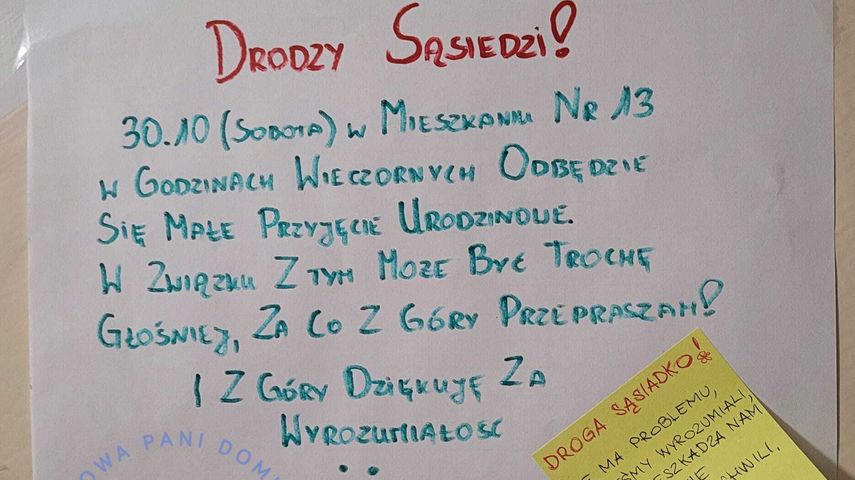 DRODZY SĄSIEDZI!
30.10 (SOBOTA) W MIESZKANIU NR 13
W GODZINACH WIECZORNYCH ODBĘDZIE
SIĘ MAŁE PRZYJĘCIE URODZINOWE.
W ZWIĄZKU Z TYM MOŻE BYĆ TROCHĘ
GŁOŚNIEJ, ZA CO Z GÓRY PRZEPRASZAM!
I Z GÓRY DZIĘKUJĘ ZA
WYROZUMIAŁOŚĆ
OWA PANI DOM
DROGA SĄSIADKO!
E MA PROBLEMU,
ŚMY WYROZUMIALI,
ESZKADZA NAM
NIE
CHWILI.